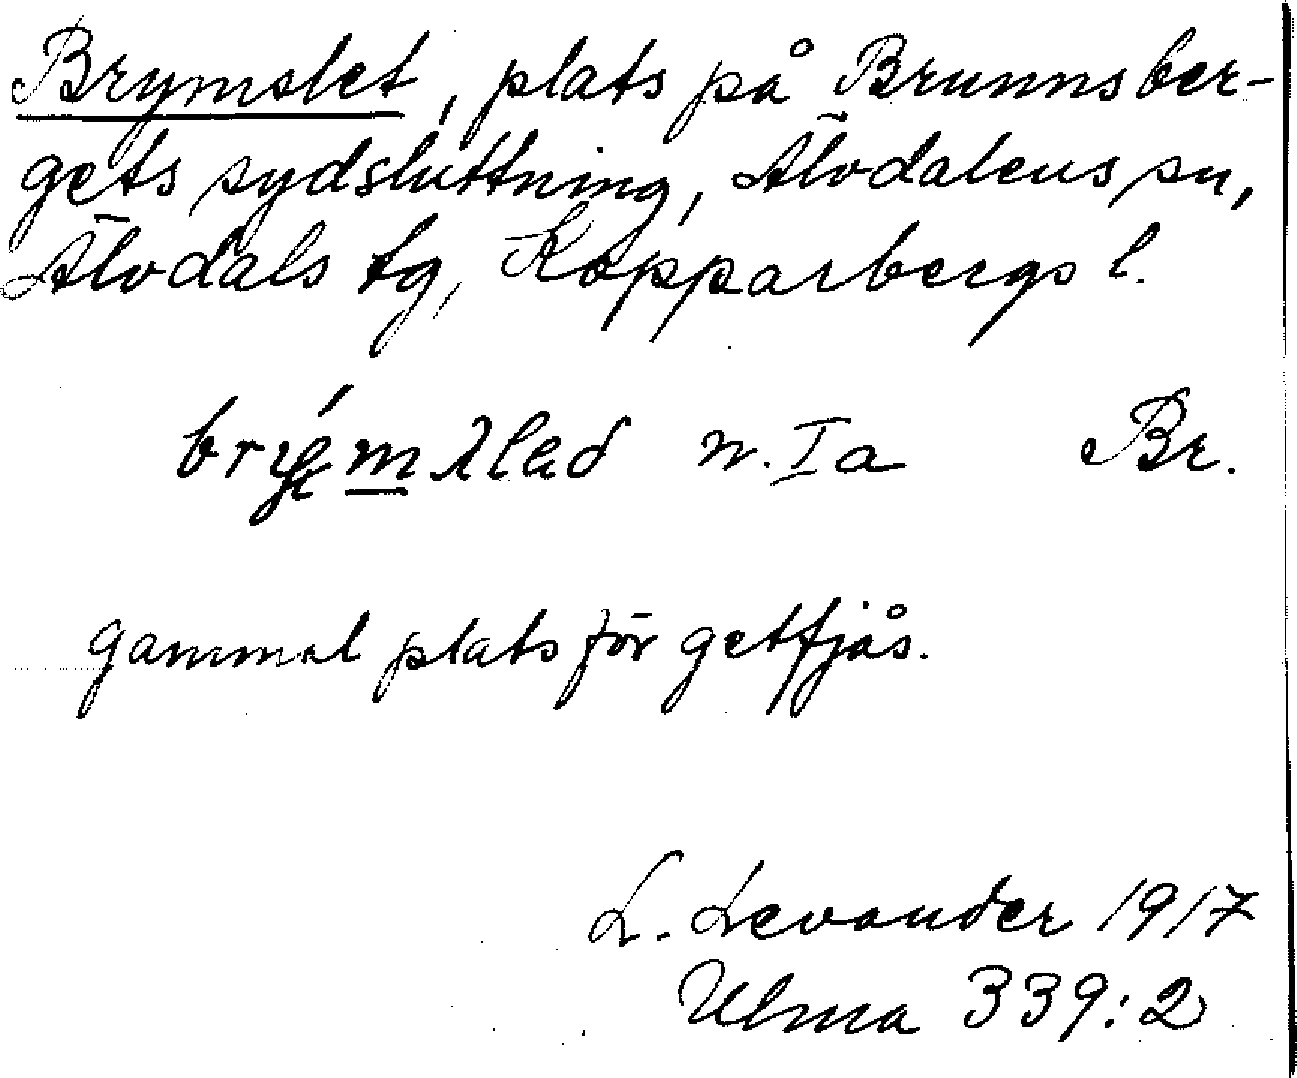 Brymslet, plats på Brunnsber-
gets sydsluttning, Älvdalens sn,
Älvdals tg, Kopparbergs l.
brýmslad n. Ia Br.
gammal plats för getfjås.
L. Levander 1917
Ulma 339:2